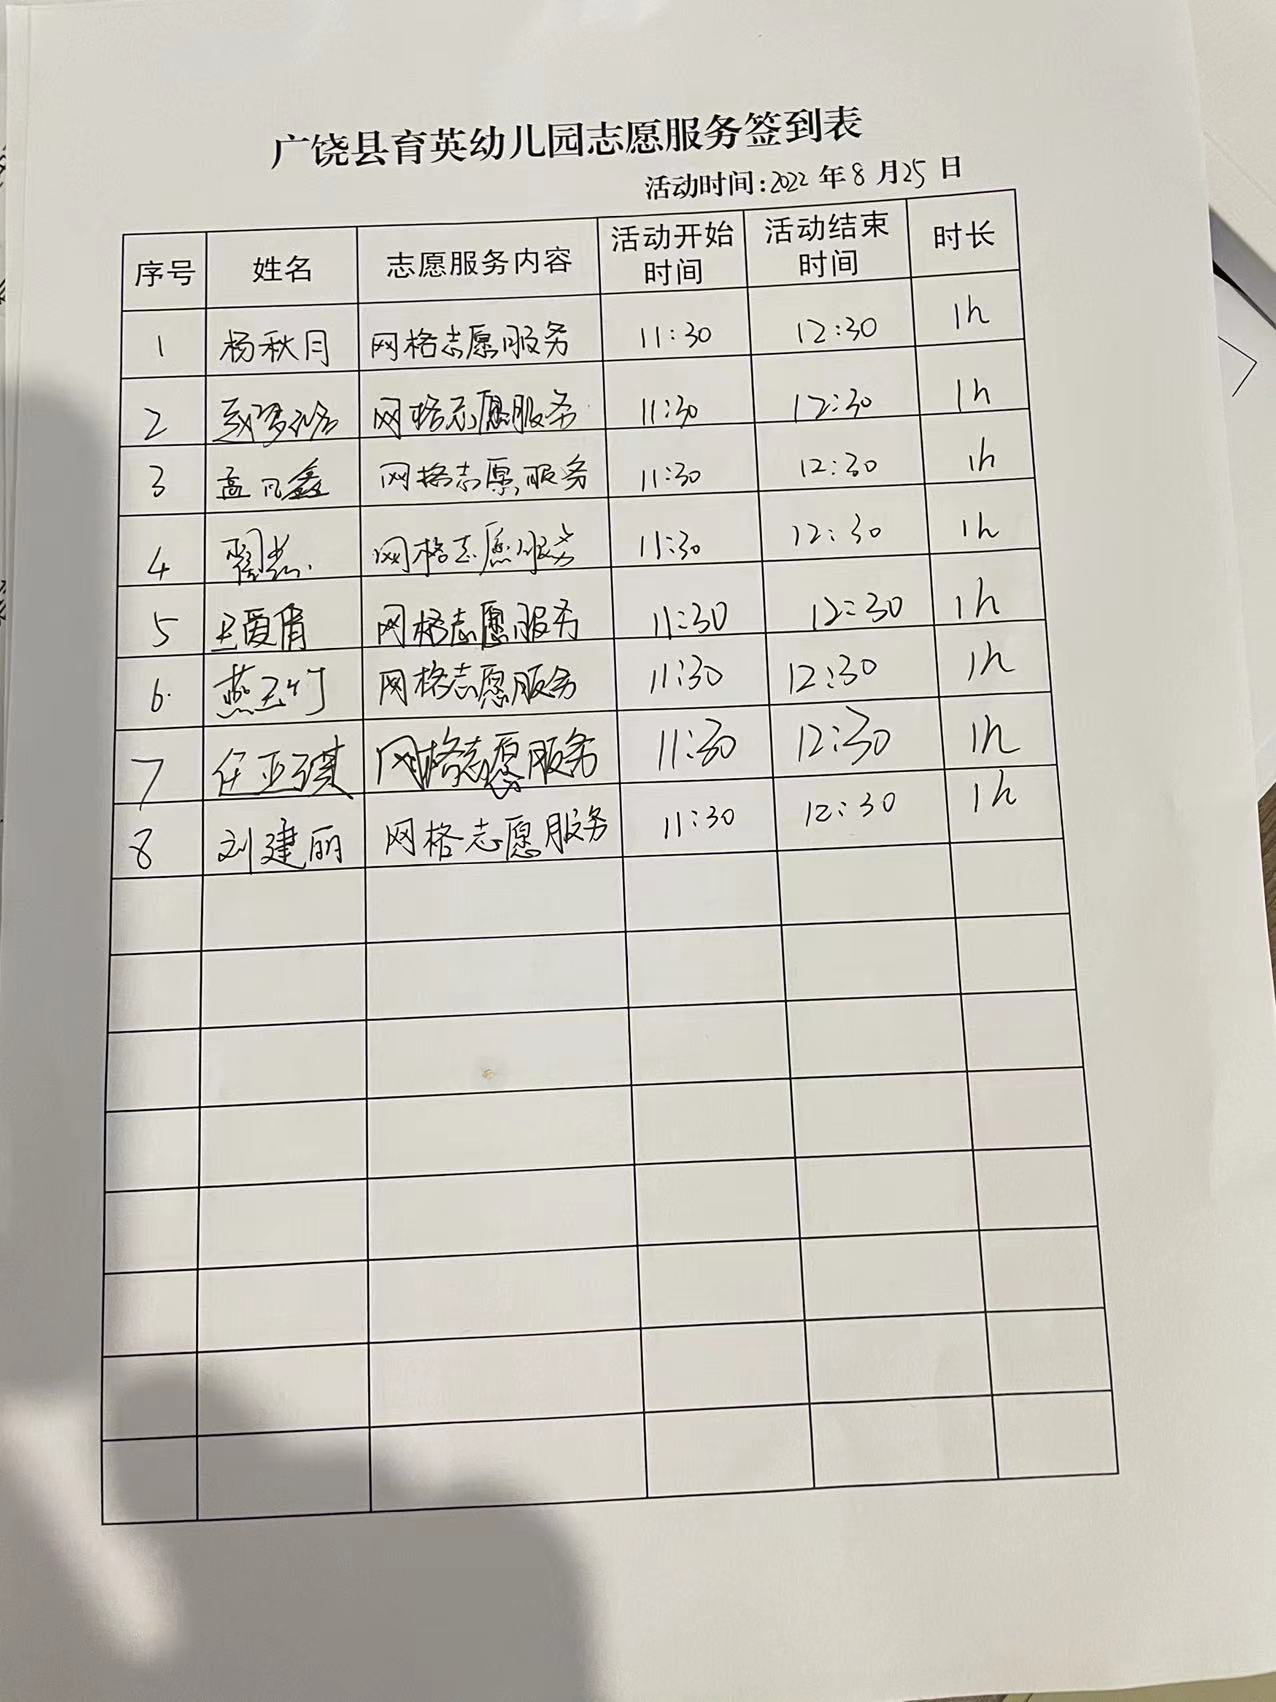 广饶县育英幼儿园志愿服务签到表
活动时间:2022年8月25日
序号 姓名 志愿服务内容 活动开始时间 活动结束时间 时长
1 杨秋月 网格志愿服务 11:30 12:30 1h
2 网格志愿服务 11:30 12:30 1h
3 孟凡鑫 网格志愿服务 11:30 12:30 1h
4 网格志愿服务 11:30 12:30 1h
5 王爱倩 网格志愿服务 11:30 12:30 1h
6. 燕玉竹 网格志愿服务 11:30 12:30 1h
7 任亚琪 网格志愿服务 11:30 12:30 1h
8 刘建丽 网格志愿服务 11:30 12:30 1h